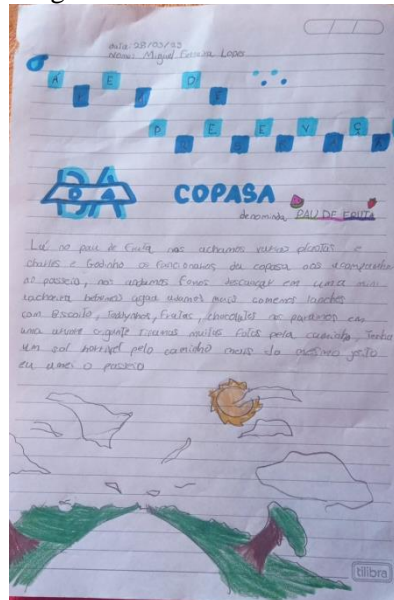 data: 28/03/23
Nome: Miguel Ferreira Lopes
A E D
P E E V Ç
DA COPASA
denominda PAU DE FRUTA
Lá no pau de fruta nos achamos varias plantas e
charles e Godinho os funcionarios da copasa nos acompanharam
no passeio, nos andamos fomos descançar em uma mini
cachoeira bebemos agua andamos mais comemos lanches
com Biscoito, Toddynhos, Frutas, chocolates nos paramos em
uma arvore gigante tiramos muitas fotos pelo caminho, Tinha
um sol horrivel pelo caminho mais do mesmo jeito
eu amei o passeio
tilibra